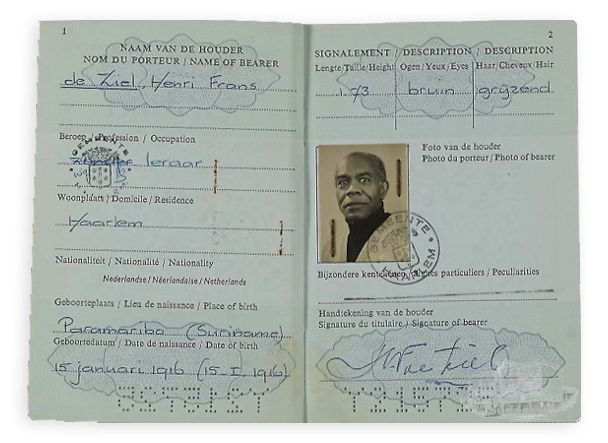 1
NAAM VAN DE HOUDER
NOM DU PORTEUR / NAME OF BEARER
de Ziel, Henri Frans
Beroep / Profession / Occupation
leraar
Woonplaats / Domicile / Residence
Haarlem
Nationaliteit / Nationalité / Nationality
Nederlandse / Néerlandaise / Netherlands
Geboorteplaats / Lieu de naissance / Place of birth
Paramaribo (Suriname)
Geboortedatum / Date de naissance / Date of birth
15 januari 1916 (15-I-1916)
2
SIGNALEMENT / DESCRIPTION / DESCRIPTION
Lengte/Taille/Height
Ogen/Yeux/Eyes
Haar/Cheveux/Hair
1.73
bruin
grijzend
Foto van de houder
Photo du porteur / Photo of bearer
GEMEENTE
HAARLEM
Bijzondere kentekenen / Signes particuliers / Peculiarities
Handtekening van de houder
Signature du titulaire / Signature of bearer